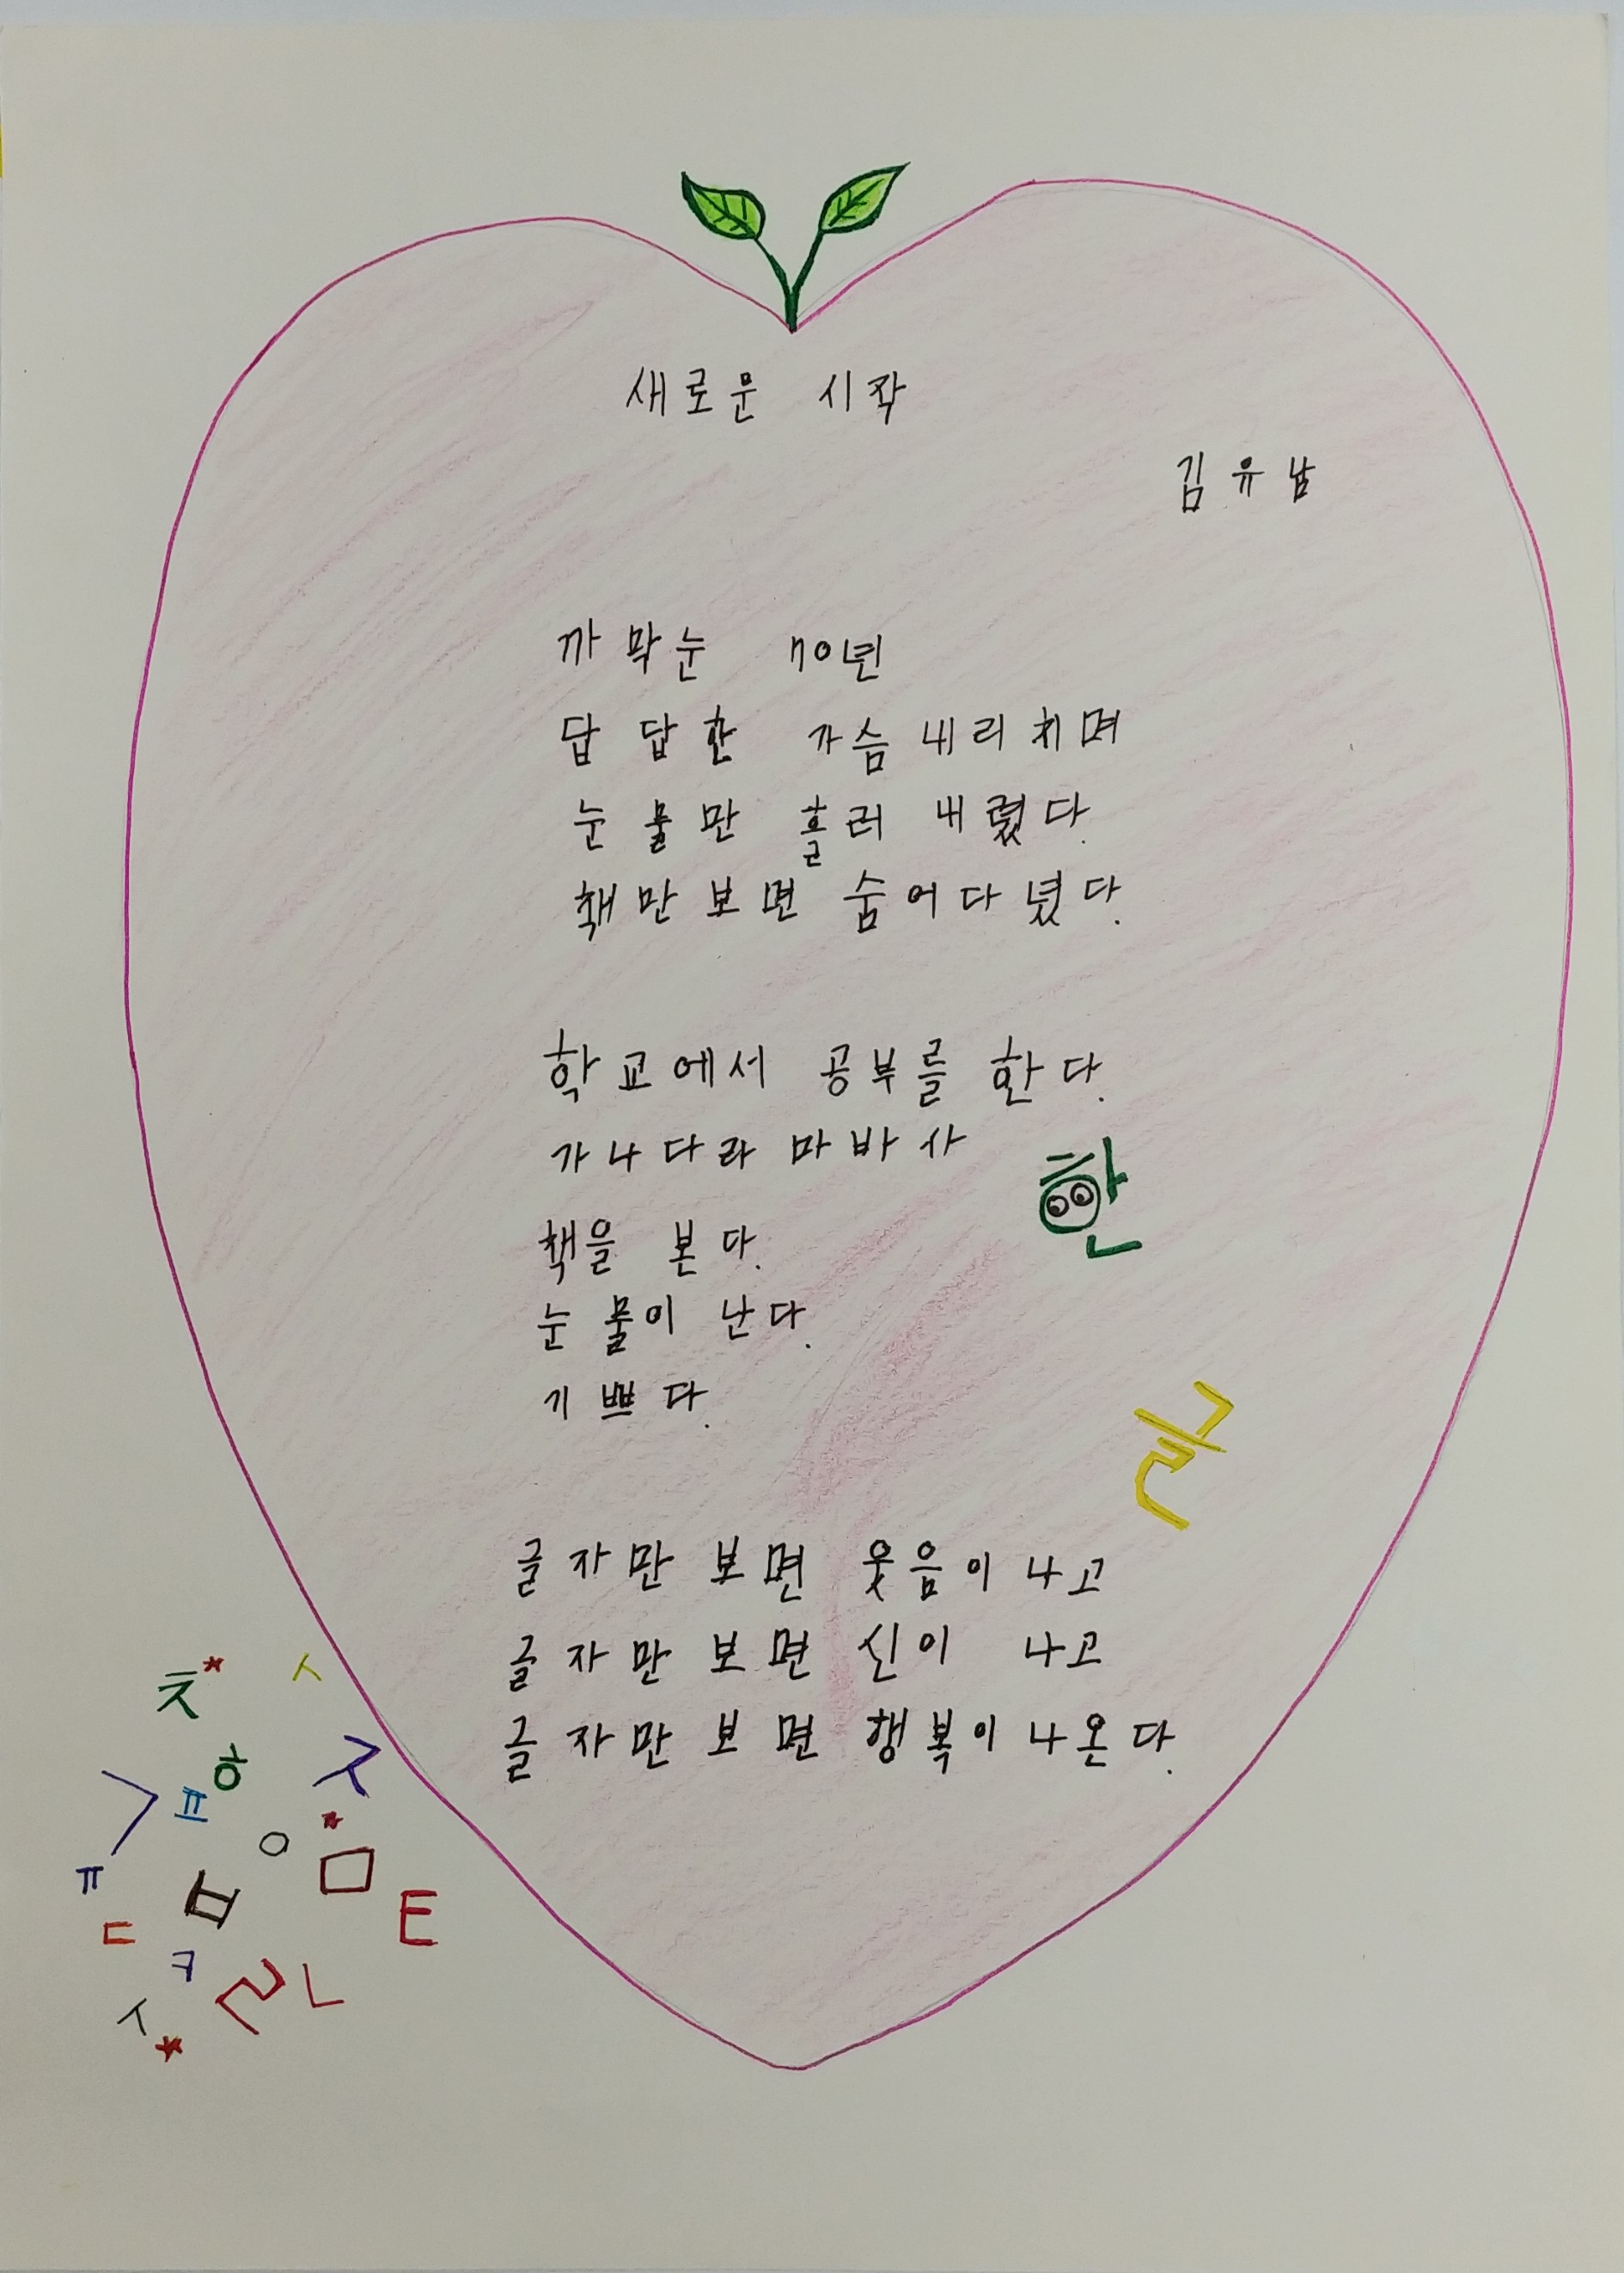 새로운 시작
김유남
까막눈 70년
답답한 가슴 내리치며
눈물만 흘러 내렸다.
책만 보면 숨어다녔다.
학교에서 공부를 한다.
가나다라마바사
책을 본다.
눈물이 난다.
기쁘다.
한
글
글자만 보면 웃음이 나고
글자만 보면 신이 나고
글자만 보면 행복이 나온다.
ㅊ ㅅ
ㅎ ㅈ
ㄱ ㅍ
ㅇ ㅁ
ㅠ ㅂ ㅌ
ㄷ
ㅋ ㄹ ㄴ
ㅅ